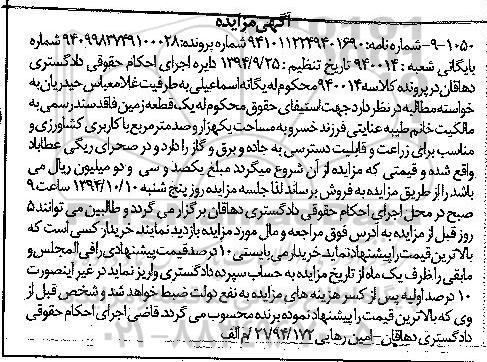 آگهی مزایده
۹-۱۰۵۰- شماره نامه: ۹۴۱۰۱۱۲۲۴۹۴۰۱۶۹۰ شماره پرونده: ۹۴۰۹۹۸۳۷۴۹۱۰۰۰۲۸ شماره
بایگانی شعبه: ۹۴۰۰۱۴ تاریخ تنظیم: ۱۳۹۴/۹/۲۵ دایره اجرای احکام حقوقی دادگستری
دهاقان در پرونده کلاسه ۹۴۰۰۱۴ محکوم له یگانه اسماعیلی به طرفیت غلامعباس حیدریان به
خواسته مطالبه در نظر دارد جهت استیفای حقوق محکوم له یک قطعه زمین فاقد سند رسمی به
مالکیت خانم طیبه عنایتی فرزند خسرو به مساحت یکهزار و صد متر مربع با کاربری کشاورزی و
مناسب برای زراعت و قابلیت دسترسی به جاده و برق و گاز را دارد و در صحرای ریگی عطاباد
واقع شده و قیمتی که مزایده از آن شروع میگردد مبلغ یکصد و سی و دو میلیون ریال می
باشد را از طریق مزایده به فروش برساند لذا جلسه مزایده روز پنج شنبه ۱۳۹۴/۱۰/۱۰ ساعت ۹
صبح در محل اجرای احکام حقوقی دادگستری دهاقان برگزار می گردد و طالبین می توانند ۵
روز قبل از مزایده به آدرس فوق مراجعه و مال مورد مزایده بازدید نمایند. خریدار کسی است که
بالاترین قیمت را پیشنهاد نماید. خریدار می بایستی ۱۰ درصد قیمت پیشنهادی را فی المجلس و
مابقی را ظرف یک ماه از تاریخ مزایده به حساب سپرده دادگستری واریز نماید در غیر اینصورت
۱۰ درصد اولیه پس از کسر هزینه های مزایده به نفع دولت ضبط خواهد شد و شخص قبل از
وی که بالاترین قیمت را پیشنهاد نموده برنده محسوب می گردد. قاضی اجرای احکام حقوقی
دادگستری دهاقان_ امین رهایی ۲۷/۹۴/۱۷۲ /م الف